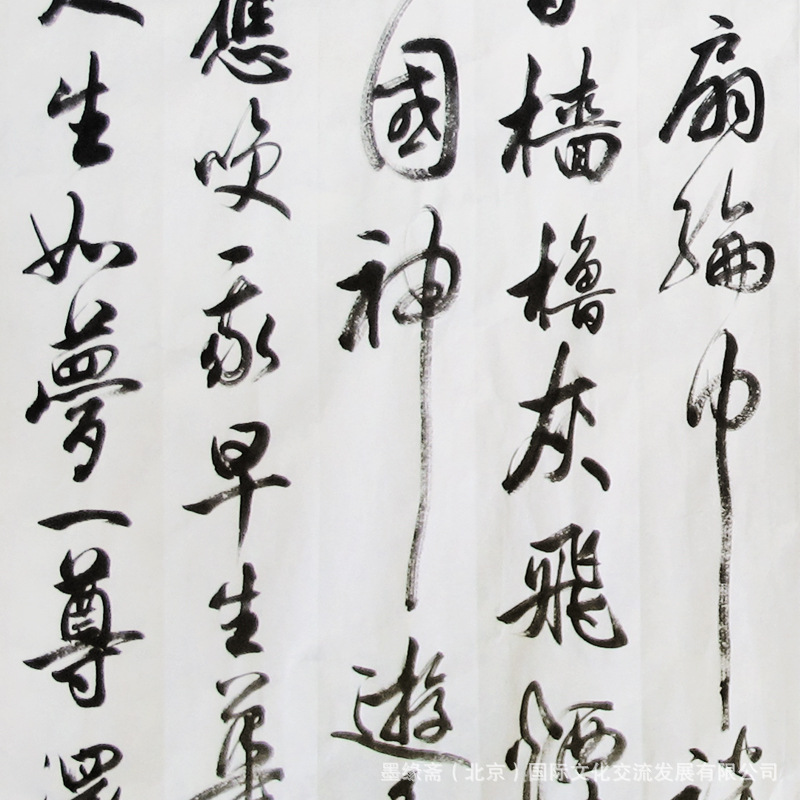 扇綸巾
檣櫓灰飛煙
國神遊
應咲我早生華
人生如夢一尊還
墨缘斋（北京）国际文化交流发展有限公司